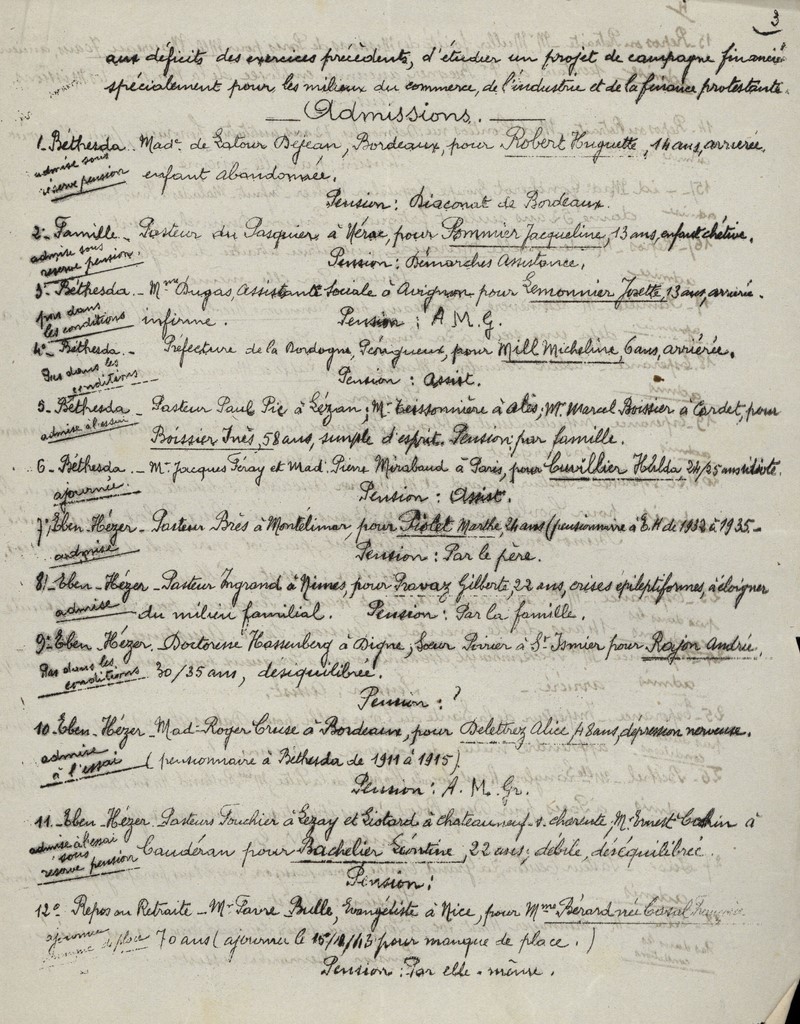 3
aux déficits des exercices précédents, d'étudier un projet de campagne financière
spécialement pour les milieux du commerce, de l'industrie et de la finance protestante.
Admissions.
1. Béthesda. Madᵉ. de Latour Déjean, Bordeaux, pour Robert Huguette, 14 ans, arriérée,
admise sous
réserve pension
enfant abandonnée.
Pension : Diaconat de Bordeaux.
2º Famille. Pasteur du Pasquier à Nérac, pour Sommier Jacqueline, 13 ans, enfant chétive.
admise sous
réserve pension.
Pension : Démarches Assistance.
3º Béthesda. Mᵐᵉ Dugas, Assistante Sociale à Avignon pour Lemonnier Josette, 13 ans, arriérée.
pas dans
les conditions
infirme. Pension : A.M.G.
4º Béthesda. Préfecture de la Dordogne, Périgueux, pour Mill Micheline, 6 ans, arriérée.
Pas dans les
conditions
Pension : Assist.
5. Béthesda. Pasteur Paul Pic à Lézan, Mʳ Teissonnière à Alès, Mʳ Marcel Boissier à Cardet, pour
admise à l'essai
Boissier Inès, 58 ans, simple d'esprit. Pension par famille.
6. Béthesda. Mʳ Jacques Féray et Mad. Pierre Mirabaud à Paris, pour Cuvillier Hilda, 24/25 ans idiote
ajournée.
Pension : Assist.
7º/ Eben-Hézer. Pasteur Brès à Montélimar, pour Piolet Marthe, 24 ans (pensionnaire à E.H de 1932 à 1935.
admise
Pension : Par le père.
8/. Eben-Hézer. Pasteur Ingrand à Nîmes, pour Pravaz Gilberte, 22 ans, crises épileptiformes, à éloigner
admise
du milieu familial. Pension : Par la famille.
9º Eben-Hézer. Doctoresse Hassenberg à Digne, Soeur Poirier à Sᵗ Ismier pour Rajon Andrée,
Pas dans les
conditions
30/35 ans, déséquilibrée.
Pension : ?
10. Eben-Hézer. Mad. Roger Cruse à Bordeaux, pour Delettrez Alice, 48 ans, dépression nerveuse.
admise
à l'essai
(pensionnaire à Béthesda de 1911 à 1915)
Pension : A.M.Gr.
11. Eben-Hézer. Pasteurs Fouchier à Lezay et Liotard à Chateauneuf s. charente, Mʳ Ernest Cahin à
admise à l'essai
sous
réserve pension
Caudéran pour Bachelier Léontine, 22 ans, débile, déséquilibrée.
Pension :
12º Repos ou Retraite. Mʳ Favre Bulle, Evangéliste à Nice, pour Mᵐᵉ Bérard née Cazal
ajournée
manque de place
70 ans (ajourner le 15/11/43 pour manque de place.)
Pension : Par elle-même.